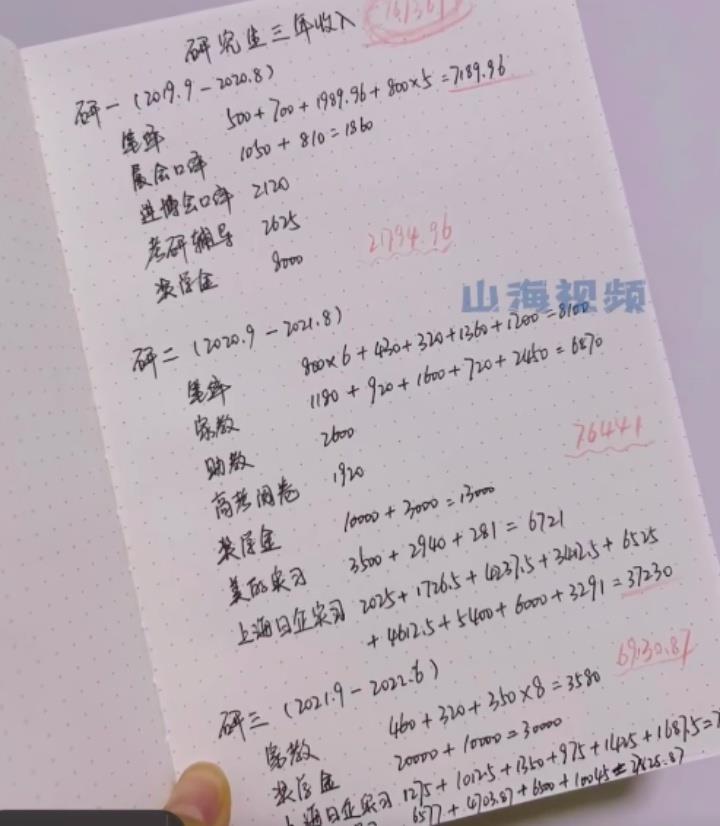 研究生三年收入
研一 (2019.9 - 2020.8)
笔译 500 + 700 + 1989.96 + 800×5 = 7189.96
展会口译 1050 + 810 = 1860
进博会口译 2120
考研辅导 2625
奖学金 8000
21794.96
山海视频
研二 (2020.9 - 2021.8)
笔译 800×6 + 430 + 320 + 1360 + 1200 = 8100
家教 1180 + 920 + 1600 + 720 + 2450 = 6870
助教 2600
高考阅卷 1920
76441
奖学金 10000 + 3000 = 13000
美的实习 3500 + 2940 + 281 = 6721
上海日企实习 2025 + 1726.5 + 4237.5 + 3412.5 + 6525
+ 4612.5 + 5400 + 6000 + 3291 = 37230
69130.87
研三 (2021.9 - 2022.6)
家教 460 + 320 + 350×8 = 3580
奖学金 20000 + 10000 = 30000
上海日企实习 1275 + 1012.5 + 1350 + 975 + 1425 + 1687.5 =
6577 + 4703.87 + 6500 + 10045 =